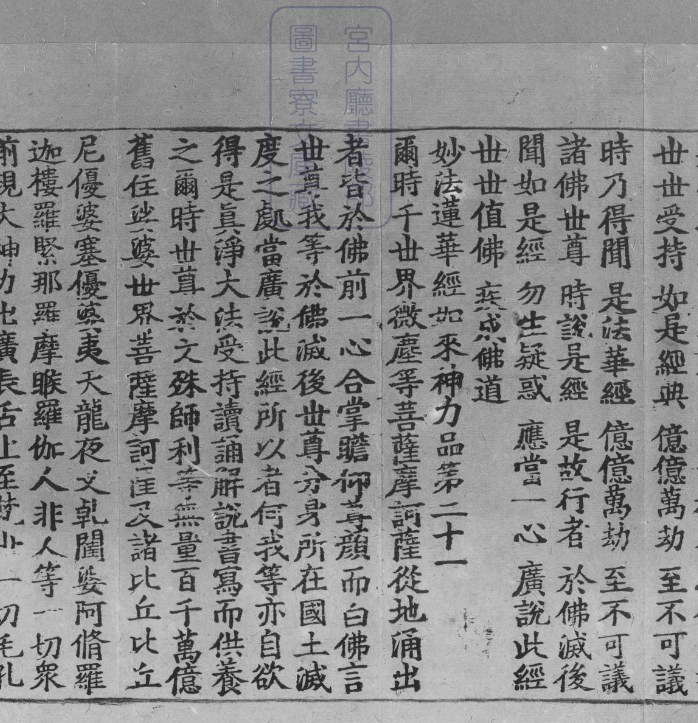 世世受持　如是經典　億億萬劫　至不可議
時乃得聞　是法華經　億億萬劫　至不可議
諸佛世尊　時說是經　是故行者　於佛滅後
聞如是經　勿生疑惑　應當一心　廣說此經
世世值佛　疾成佛道
妙法蓮華經如來神力品第二十一
爾時千世界微塵等菩薩摩訶薩從地涌出
者皆於佛前一心合掌瞻仰尊顏而白佛言
世尊我等於佛滅後世尊分身所在國土滅
度之處當廣說此經所以者何我等亦自欲
得是真淨大法受持讀誦解說書寫而供養
之爾時世尊於文殊師利等無量百千萬億
舊住娑婆世界菩薩摩訶薩及諸比丘比丘
尼優婆塞優婆夷天龍夜叉乹闥婆阿脩羅
迦樓羅緊那羅摩睺羅伽人非人等一切衆
前現大神力出廣長舌上至梵世一切毛孔
宮內廳書陵部
圖書寮文庫藏